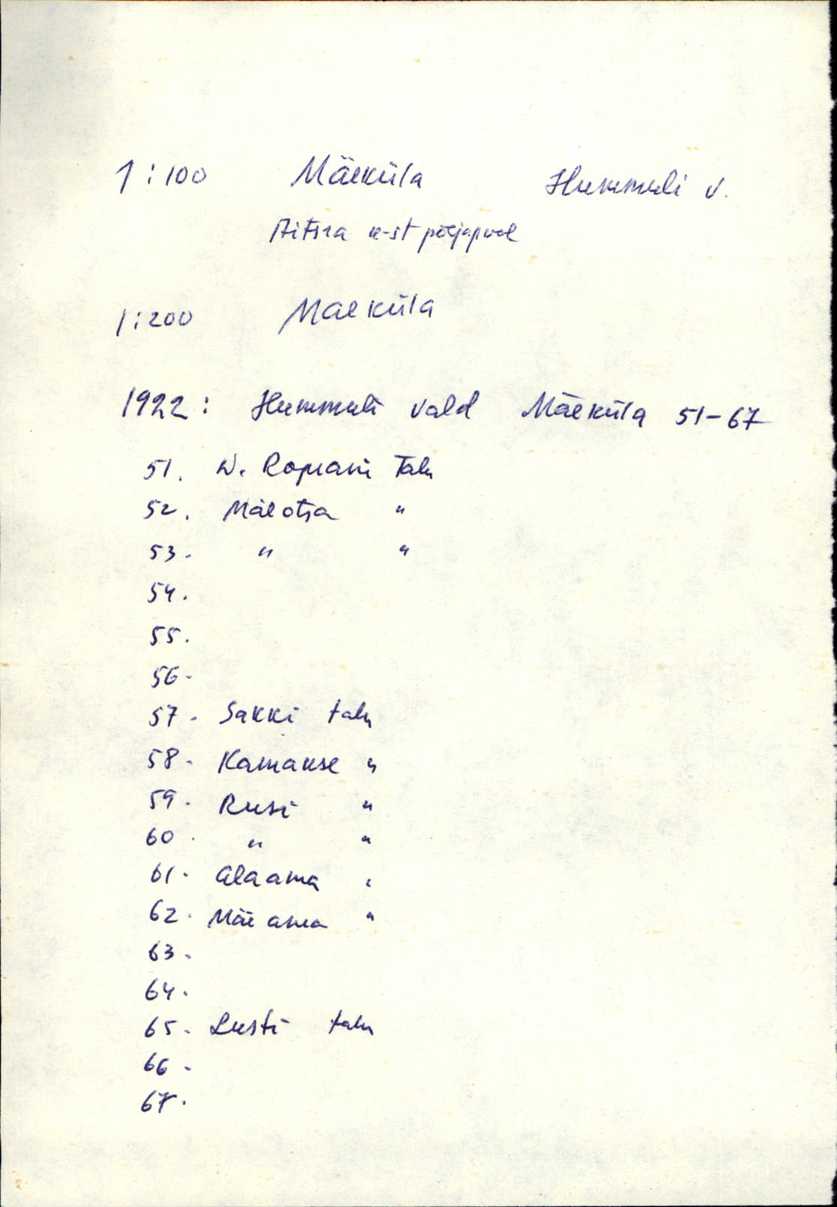 1:100 Mäeküla Hummuli v.
Aitsra k-st põhjapool
1:200 Mäeküla
1922: Hummuli vald Mäeküla 51-67
51. W. Roprani talu
52. Mäeotsa "
53. " "
54.
55.
56.
57. Sakki talu
58. Kamakse "
59. Rusi "
60. " "
61. Alaama "
62. Mäeama "
63.
64.
65. Lusti talu
66.
67.